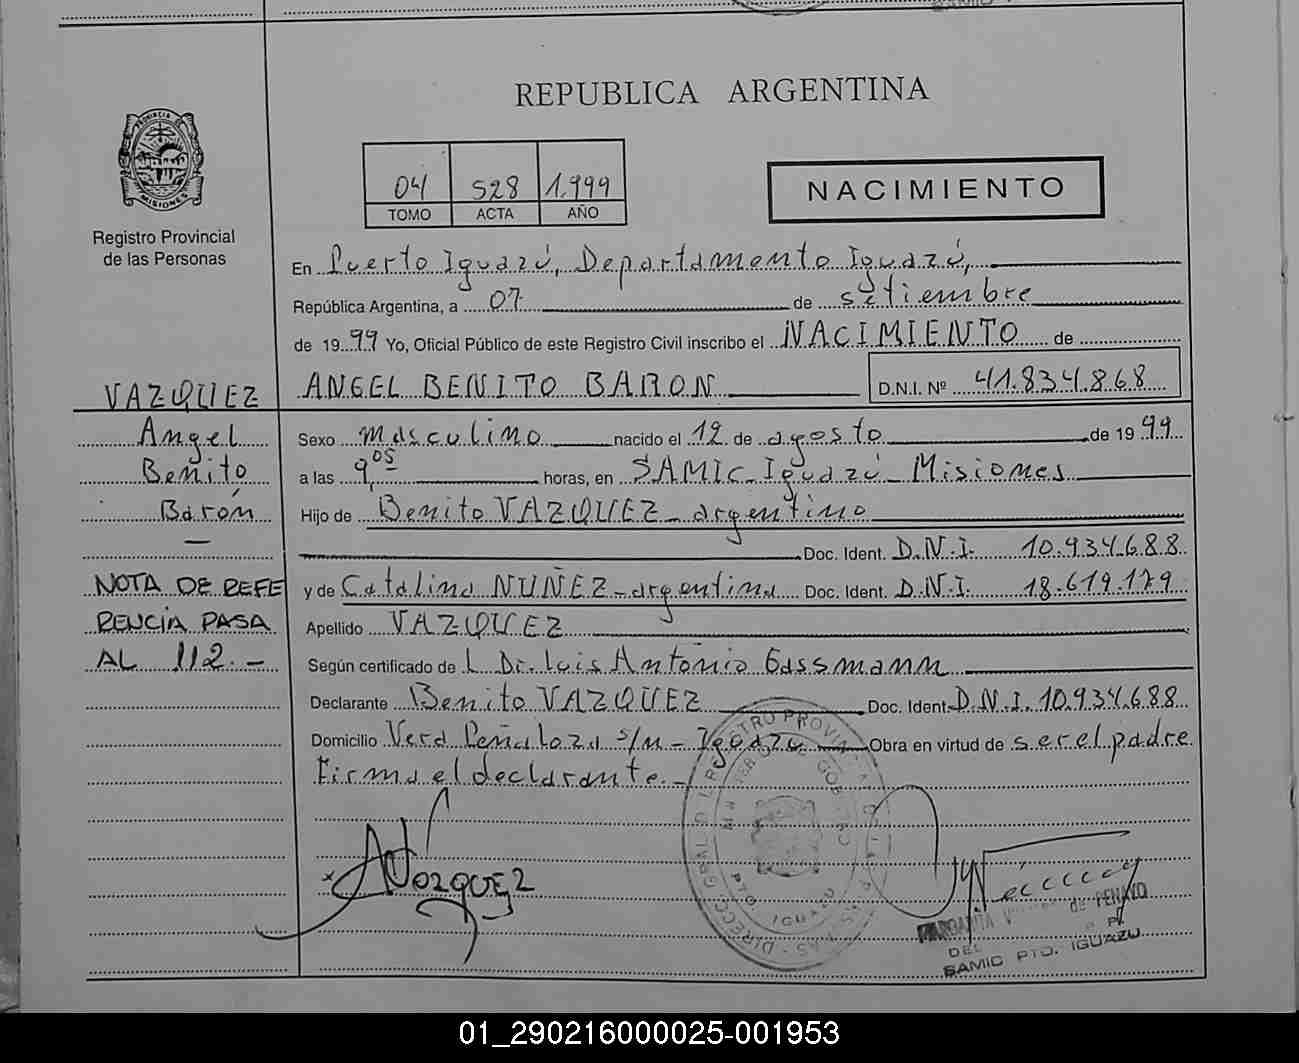 REPUBLICA ARGENTINA
PROVINCIA DE
MISIONES
Registro Provincial
de las Personas
04 528 1.999
TOMO ACTA AÑO
NACIMIENTO
En Puerto Iguazú, Departamento Iguazú,
República Argentina, a 07 de setiembre
de 19 99 Yo, Oficial Público de este Registro Civil inscribo el NACIMIENTO de
ANGEL BENITO BARON D.N.I. Nº 41.834.868
Sexo masculino nacido el 12 de agosto de 19 99
a las 9,05 horas, en SAMIC- Iguazú- Misiones
Hijo de Benito VAZQUEZ - argentino
Doc. Ident. D.N.I. 10.934.688
y de Catalina NUÑEZ - argentina Doc. Ident. D.N.I. 18.619.179
Apellido VAZQUEZ
Según certificado de l Dr. Luis Antonio Gassmann
Declarante Benito VAZQUEZ Doc. Ident. D.N.I. 10.934.688
Domicilio Vera Peñaloza s/n - Iguazú Obra en virtud de ser el padre
Firma el declarante.-
VAZQUEZ
Angel
Benito
Barón
—
NOTA DE REFE
RENCIA PASA
AL 112.-
x Vazquez
DIRECC. GRAL. D L REGISTRO PROVINCIAL DE LAS P
PTO IGUAZU
de PENAYO
DEL
SAMIC PTO. IGUAZU
01_290216000025-001953